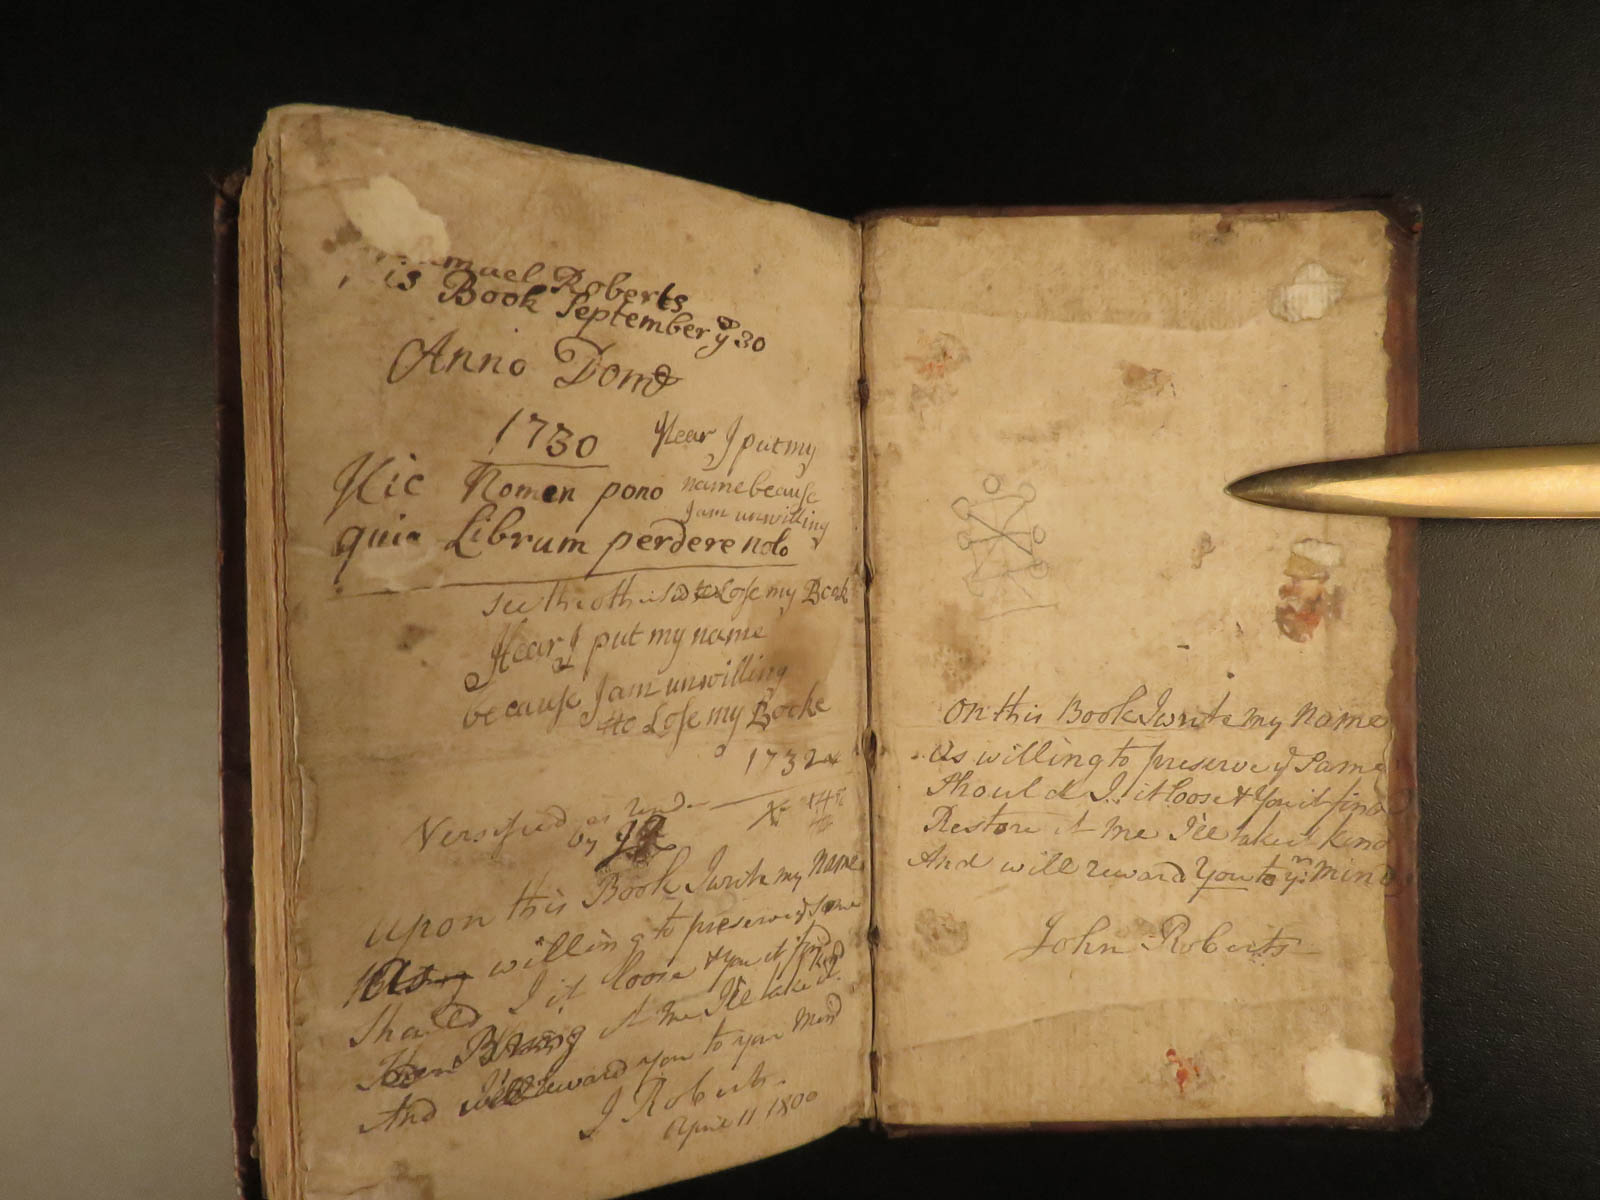 muel Roberts
is Book September ye 30
Anno Dom
1730
Hic Nomen pono
quia Librum perdere nolo
Hear I put my
name because
I am unwilling
to Lose my Book
see the other
Hear I put my name
because I am unwilling
to Lose my Booke
1732
Versifyed
by
Upon this Book I write my Name
As willing to preserve ye Same
Should I it loose & you it find
Then Bring it Me I'll take it kind
And will reward you to your Mind
J Roberts
April 11 1800
On this Book I write my Name
As willing to preserve ye Same
Should I it loose & You it find
Restore it Me I'le take it kind
And will reward You to yr. Mind
John Roberts